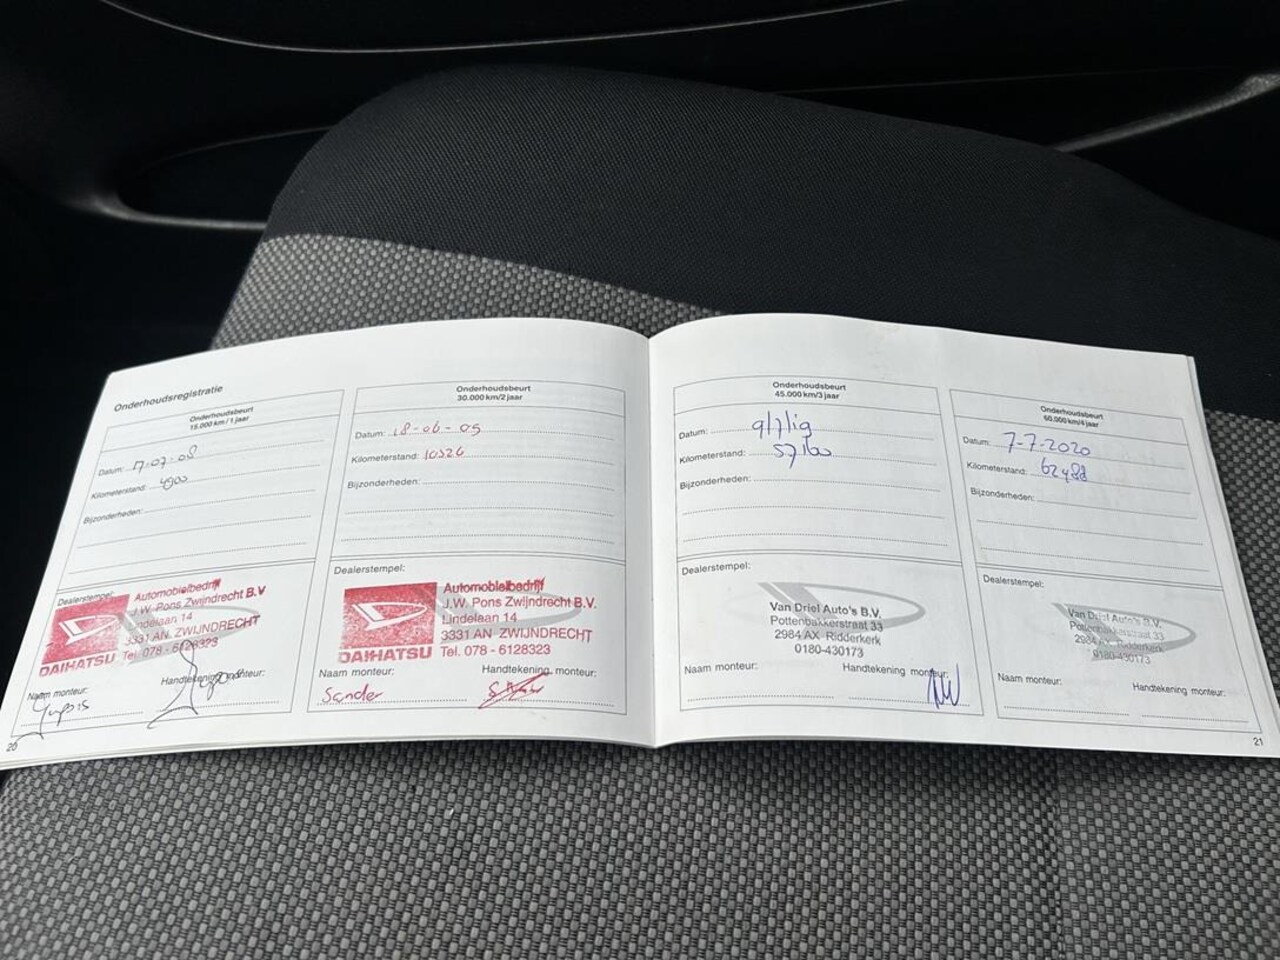 Onderhoudsregistratie
Onderhoudsbeurt
15.000 km/1 jaar
Datum: 17-07-08
Kilometerstand: 4900
Bijzonderheden:
Dealerstempel:
DAIHATSU
Automobielbedrijf
J.W. Pons Zwijndrecht B.V
Lindelaan 14
3331 AN ZWIJNDRECHT
Tel. 078 - 6128323
Naam monteur:
Handtekening monteur:
20
Onderhoudsbeurt
30.000 km/2 jaar
Datum: 18-06-09
Kilometerstand: 10326
Bijzonderheden:
Dealerstempel:
DAIHATSU
Automobielbedrijf
J.W. Pons Zwijndrecht B.V.
Lindelaan 14
3331 AN ZWIJNDRECHT
Tel. 078 - 6128323
Naam monteur:
Handtekening monteur:
Sander
Onderhoudsbeurt
45.000 km/3 jaar
Datum: 9/7/19
Kilometerstand: 57160
Bijzonderheden:
Dealerstempel:
Van Driel Auto's B.V.
Pottenbakkerstraat 33
2984 AX Ridderkerk
0180-430173
Naam monteur:
Handtekening monteur:
Onderhoudsbeurt
60.000 km/4 jaar
Datum: 7-7-2020
Kilometerstand: 62488
Bijzonderheden:
Dealerstempel:
Van Driel Auto's B.V.
Pottenbakkerstraat 33
2984 AX Ridderkerk
0180-430173
Naam monteur:
Handtekening monteur:
21